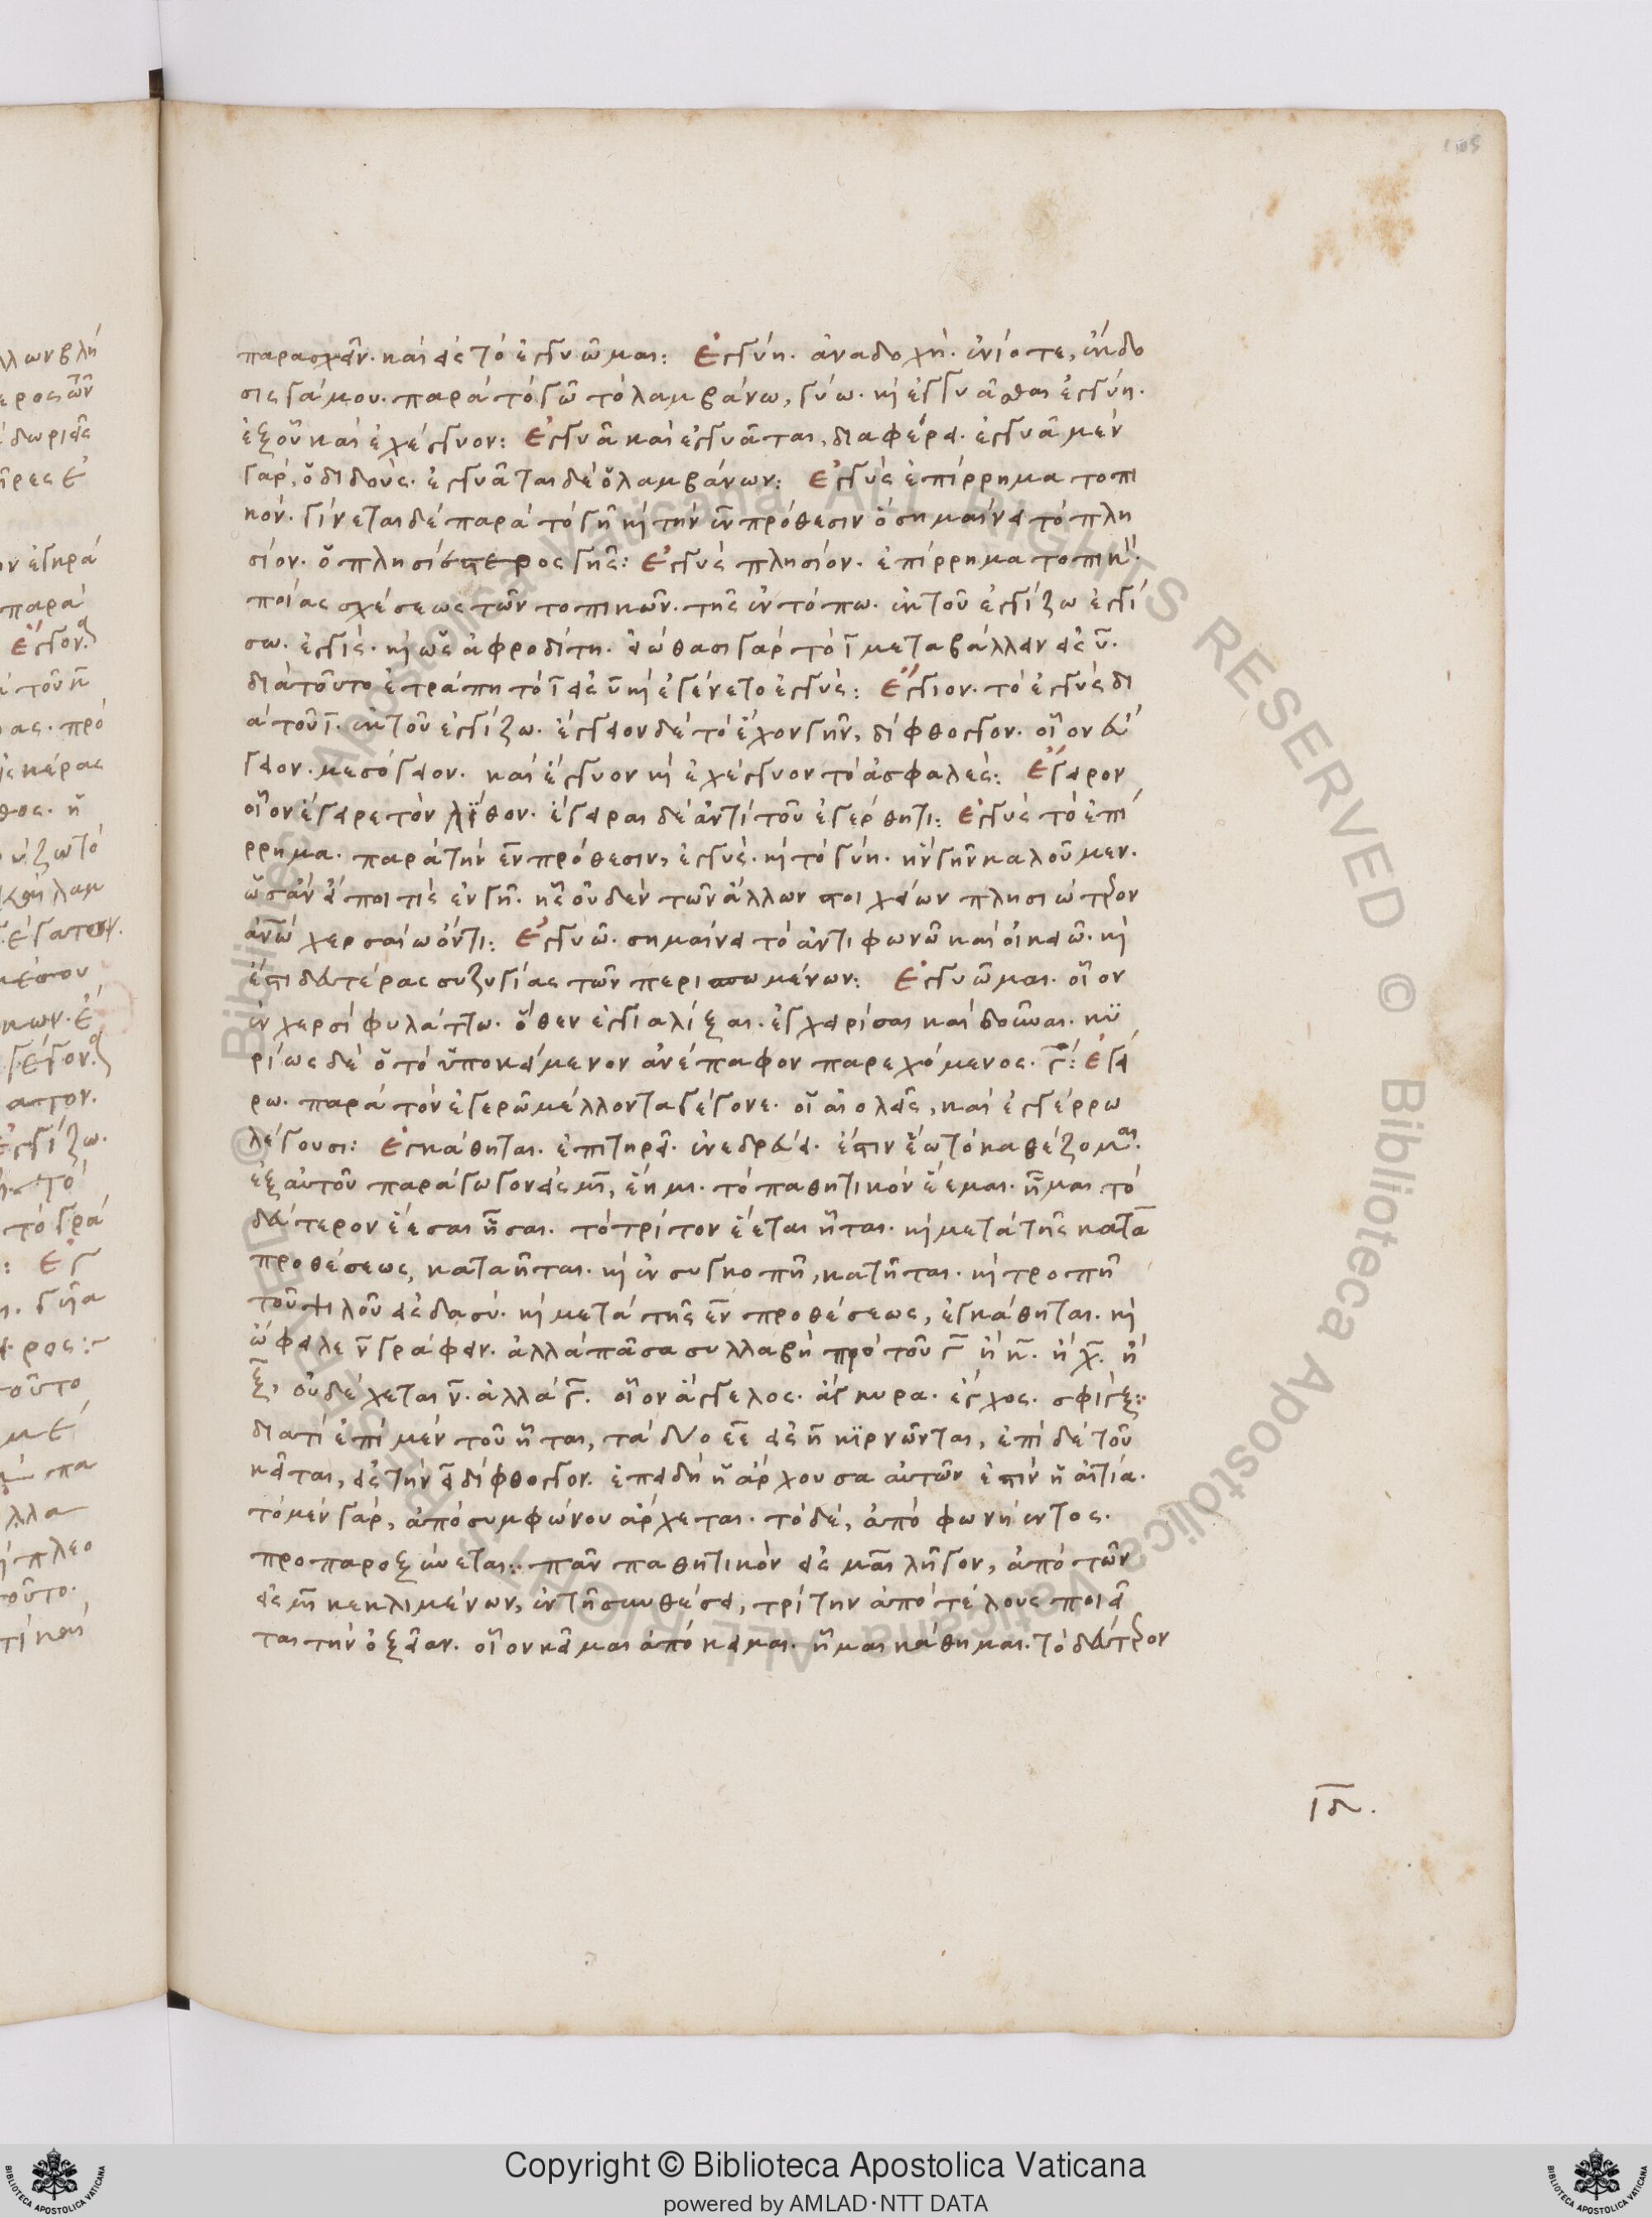 παρασχεῖν. καὶ εἰς τὸ ἐγγυῶμαι: Ἐγγύη. ἀναδοχὴ. ἐνίοτε, ἔκδο
σις γάμου. παρὰ τὸ γῶ τὸ λαμβάνω, γύω. καὶ ἐγγυᾶσθαι ἐγγύη.
ἐξ οὗ καὶ ἐχέγγυον: Ἐγγυᾶ καὶ ἐγγυᾶται, διαφέρει. ἐγγυᾶ μὲν
γὰρ, ὁ διδοὺς. ἐγγυᾶται δὲ ὁ λαμβάνων: Ἐγγὺς ἐπίρρημα τοπι
κόν. γίνεται δὲ παρὰ τὸ γῆ καὶ τὴν ἐν πρόθεσιν ὃ σημαίνει τὸ πλη
σίον. ὁ πλησιέστερος γῆς: Ἐγγὺς πλησίον. ἐπίρρημα τοπικ
ποίας σχέσεως τῶν τοπικῶν. τῆς ἐν τόπω. ἐκ τοῦ ἐγγίζω ἐγγί
σω. ἐγγὶς. καὶ ὡς ἀφροδίτη. εἰώθασι γὰρ τὸ ι μεταβάλλειν εἰς υ.
διὰ τοῦτο ἐτράπη τὸ ι εἰς υ καὶ ἐγένετο ἐγγύς: Ἔγγιον. τὸ ἐγγὺς δι
ὰ τοῦ ι. ἐκ τοῦ ἐγγίζω. ἔγγειον δὲ τὸ ἔχον γῆν, δίφθογγον. οἷον εὔ
γειον. μεσόγειον. καὶ ἔγγυον καὶ ἐχέγγυον τὸ ἀσφαλές: Ἔγειρον
οἷον ἐγείρε τὸν λίθον. ἔγειραι δὲ ἀντὶ τοῦ ἐγέρθητι: Ἐγγὺς τὸ ἐπί
ρρημα. παρὰ τὴν ἐν πρόθεσιν, ἐγγὺς. καὶ τὸ γύη. ἣν γῆν καλοῦμεν.
ὡσὰν εἴποι τις ἐν γῆ. ἧς οὐδὲν τῶν ἄλλων στοιχείων πλησιώτερον
ἀνω χερσαίω ὄντι: Ἐγγυῶ. σημαίνει τὸ ἀντιφωνῶ καὶ οἰκειῶ. καὶ
ἔστι δευτέρας συζυγίας τῶν περισπωμένων: Ἐγγυῶμαι. οἷον
ἐν χερσὶ φυλάττω. ὅθεν ἐγγιαλίξαι. ἐγχειρίσαι καὶ δοῦναι. κυ
ρίως δὲ ὁ τὸ ὑποκείμενον ἀνέπαφον παρεχόμενος. Ἐγεί
ρω. παρὰ τὸν ἐγερῶ μέλλοντα γέγονε. οἱ αἰολεῖς, καὶ ἐγέρρω
λέγουσι: Ἐγκάθηται. ἐπιτηρεῖ. ἐνεδρεύει. ἔστιν ἕω τὸ καθέζομαι.
ἐξ αὐτοῦ παράγωγον εἰς μι, ἕημι. τὸ παθητικὸν ἕεμαι. ἧμαι τὸ
δεύτερον ἕεσαι ἧσαι. τὸ τρίτον ἕεται ἧται. καὶ μετὰ τῆς κατὰ
προθέσεως, καταῆται. καὶ ἐν συγκοπῆ, κατῆται. καὶ τροπῆ
τοῦ ψιλοῦ εἰς δασύ. καὶ μετὰ τῆς ἐν προθέσεως, ἐγκάθηται. καὶ
ὤφειλε ν γράφειν. ἀλλὰ πᾶσα συλλαβὴ πρὸ τοῦ γ ἢ κ. ἢ χ. ἢ
ξ, οὐ δέχεται ν. ἀλλὰ γ. οἷον ἄγγελος. ἄγκυρα. ἔγχος. σφίγξ:
διατί ἐπὶ μὲν τοῦ ἧται, τὰ δύο εε εἰς η κιρνῶνται, ἐπὶ δὲ τοῦ
κεῖται, εἰς τὴν ει δίφθογγον. ἐπειδὴ ἡ ἄρχουσα αὐτῶν ἐστὶν ἡ αἰτία.
τὸ μὲν γὰρ, ἀπὸ συμφώνου ἄρχεται. τὸ δὲ, ἀπὸ φωνήεντος.
προπαροξύνεται: πᾶν παθητικὸν εἰς μαι λῆγον, ἀπὸ τῶν
εἰς μι κεκλιμένων, ἐν τῆ συνθέσει, τρίτην ἀπὸ τέλους ποιεῖ
ται τὴν ὀξεῖαν. οἷον κεῖμαι ἀπόκειμαι. ἧμαι κάθημαι. τὸ δεύτερον
ιδ.
Copyright © Biblioteca Apostolica Vaticana
powered by AMLAD·NTT DATA